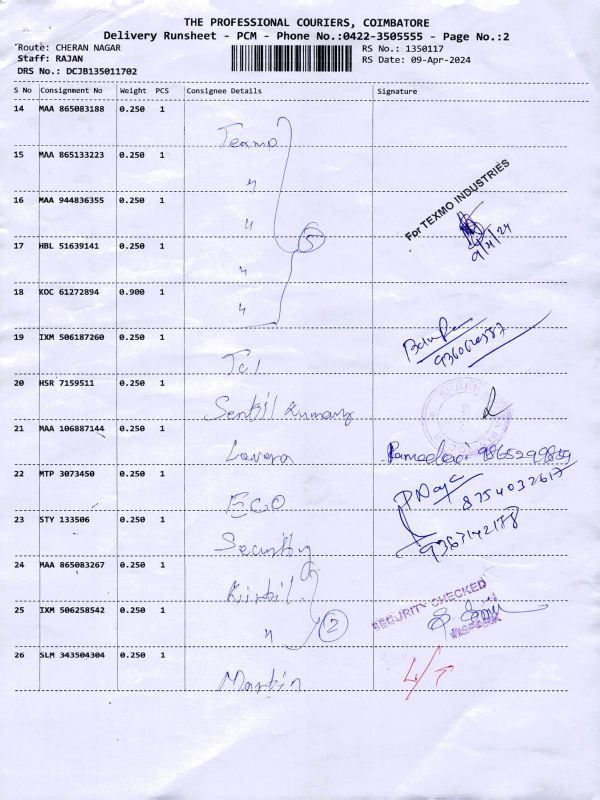 THE PROFESSIONAL COURIERS, COIMBATORE
Delivery Runsheet - PCM - Phone No.:0422-3505555 - Page No.:2
Route: CHERAN NAGAR RS No.: 1350117
Staff: RAJAN RS Date: 09-Apr-2024
DRS No.: DCJB135011702
S No Consignment No Weight PCS Consignee Details Signature
14 MAA 865083188 0.250 1 Texmo
15 MAA 865133223 0.250 1 "
For TEXMO INDUSTRIES
16 MAA 944836355 0.250 1 "
9/4/24
17 HBL 51639141 0.250 1 " 5
18 KOC 61272894 0.900 1 "
19 IXM 506187260 0.250 1 Tcl
20 HSR 7159511 0.250 1 Senthil Kumar
21 MAA 106887144 0.250 1 9865299859
22 MTP 3073450 0.250 1 ECO 8754032617
23 STY 133506 0.250 1 Security 9363142178
24 MAA 865083267 0.250 1
SECURITY CHECKED
25 IXM 506258542 0.250 1 " 2
26 SLM 343504304 0.250 1 Martin